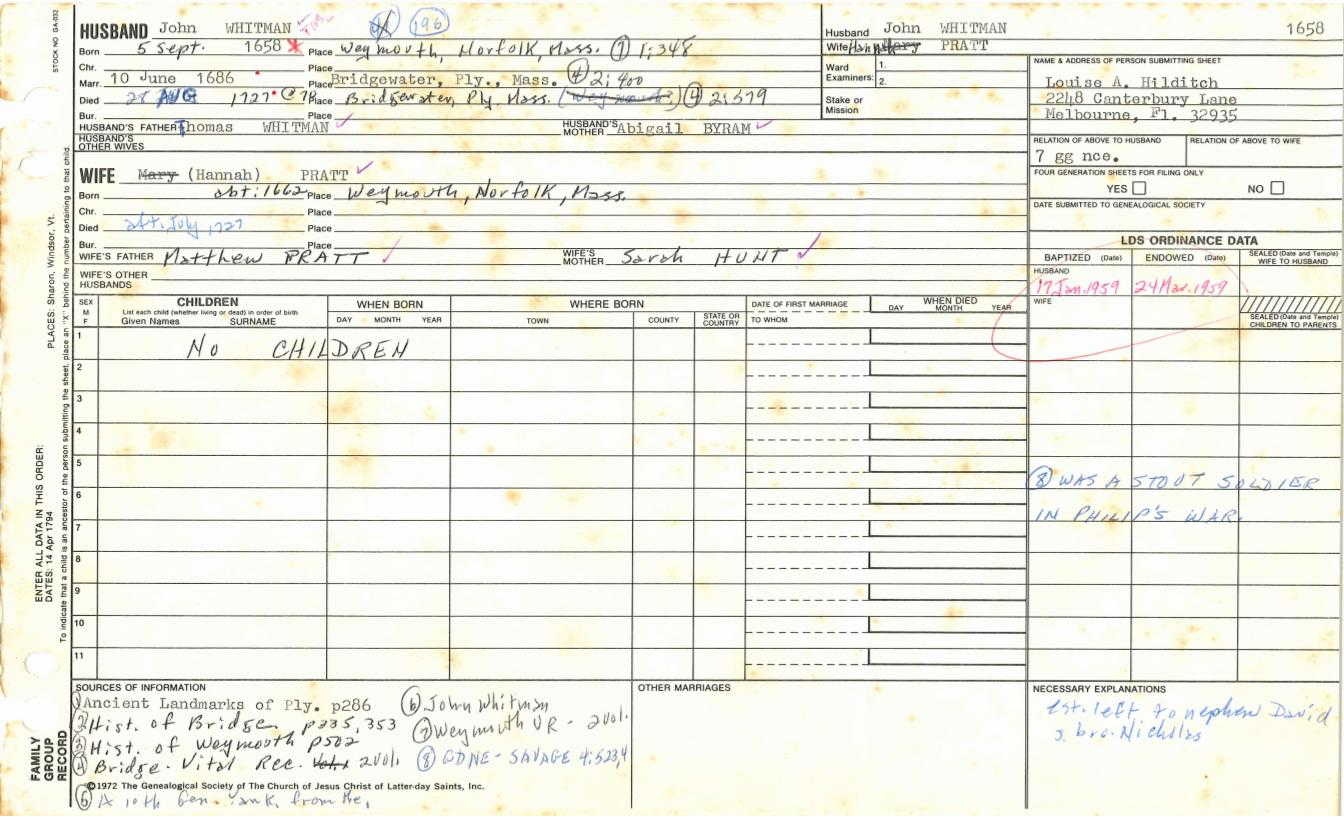 STOCK NO GA-032
HUSBAND John WHITMAN 196
Born 5 Sept. 1658 Place Weymouth, Norfolk, Mass. (7) 1:348
Chr. Place
Marr. 10 June 1686 Place Bridgewater, Ply., Mass. (4) 2:400
Died 28 AUG 1727 @78 Place Bridgewater, Ply. Mass. (Weymouth?) (4) 2:579
Bur. Place
HUSBAND'S FATHER Thomas WHITMAN HUSBAND'S MOTHER Abigail BYRAM
HUSBAND'S OTHER WIVES
WIFE Mary (Hannah) PRATT
Born abt: 1662 Place Weymouth, Norfolk, Mass.
Chr. Place
Died aft. July 1727 Place
Bur. Place
WIFE'S FATHER Matthew PRATT WIFE'S MOTHER Sarah HUNT
WIFE'S OTHER HUSBANDS
Husband John WHITMAN 1658
Wife Hannah Mary PRATT
Ward Examiners: 1.
2.
Stake or Mission
NAME & ADDRESS OF PERSON SUBMITTING SHEET
Louise A. Hilditch
2248 Canterbury Lane
Melbourne, Fl. 32935
RELATION OF ABOVE TO HUSBAND RELATION OF ABOVE TO WIFE
7 gg nce.
FOUR GENERATION SHEETS FOR FILING ONLY
YES NO
DATE SUBMITTED TO GENEALOGICAL SOCIETY
LDS ORDINANCE DATA
BAPTIZED (Date) ENDOWED (Date) SEALED (Date and Temple) WIFE TO HUSBAND
HUSBAND
17 Jan. 1959 24 Mar. 1959
WIFE
SEALED (Date and Temple) CHILDREN TO PARENTS
SEX M F CHILDREN WHEN BORN WHERE BORN DATE OF FIRST MARRIAGE WHEN DIED
List each child (whether living or dead) in order of birth
Given Names SURNAME DAY MONTH YEAR TOWN COUNTY STATE OR COUNTRY TO WHOM DAY MONTH YEAR
1 No CHILDREN
2
3
4
5
6
7
8
9
10
11
(8) WAS A STOUT SOLDIER
IN PHILIP'S WAR.
SOURCES OF INFORMATION
(1) Ancient Landmarks of Ply. p286
(2) Hist. of Bridge. p335, 353
(3) Hist. of Weymouth p502
(4) Bridge. Vital Rec. Vol. 2 vol.
(6) John Whitman
(7) Weymouth VR - 2 vol.
(8) GDNE - SAVAGE 4:523,4
©1972 The Genealogical Society of The Church of Jesus Christ of Latter-day Saints, Inc.
(5) A 10th Gen. from the,
OTHER MARRIAGES
NECESSARY EXPLANATIONS
est. left to nephew David
s. bro. Nicholas
PLACES: Sharon, Windsor, Vt.
To indicate that a child is an ancestor of the person submitting the sheet, place an "X" behind the number pertaining to that child.
ENTER ALL DATA IN THIS ORDER:
DATES: 14 Apr 1794
FAMILY GROUP RECORD